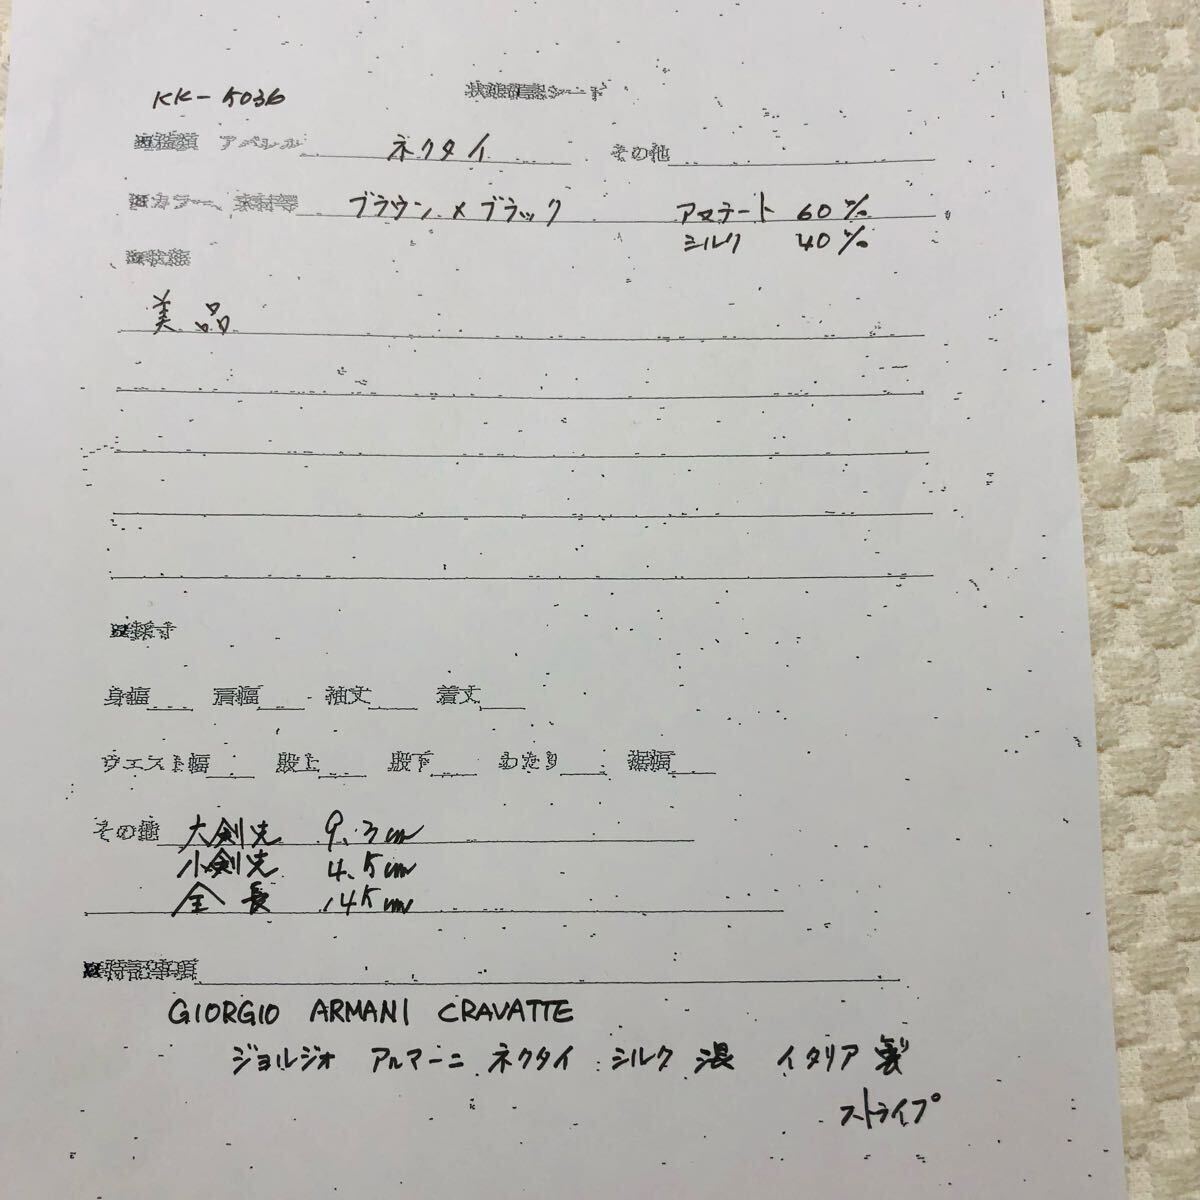 KK-5036
状態確認シート
■種類 アパレル ネクタイ その他
■カラー、素材等 ブラウン×ブラック アセテート 60%
シルク 40%
■状態
美品
■採寸
身幅 肩幅 袖丈 着丈
ウエスト幅 股上 股下 わたり 裾幅
その他 大剣先 9.3cm
小剣先 4.5cm
全長 145cm
■特記事項
GIORGIO ARMANI CRAVATTE
ジョルジオ アルマーニ ネクタイ シルク 混 イタリア 製
ストライプ